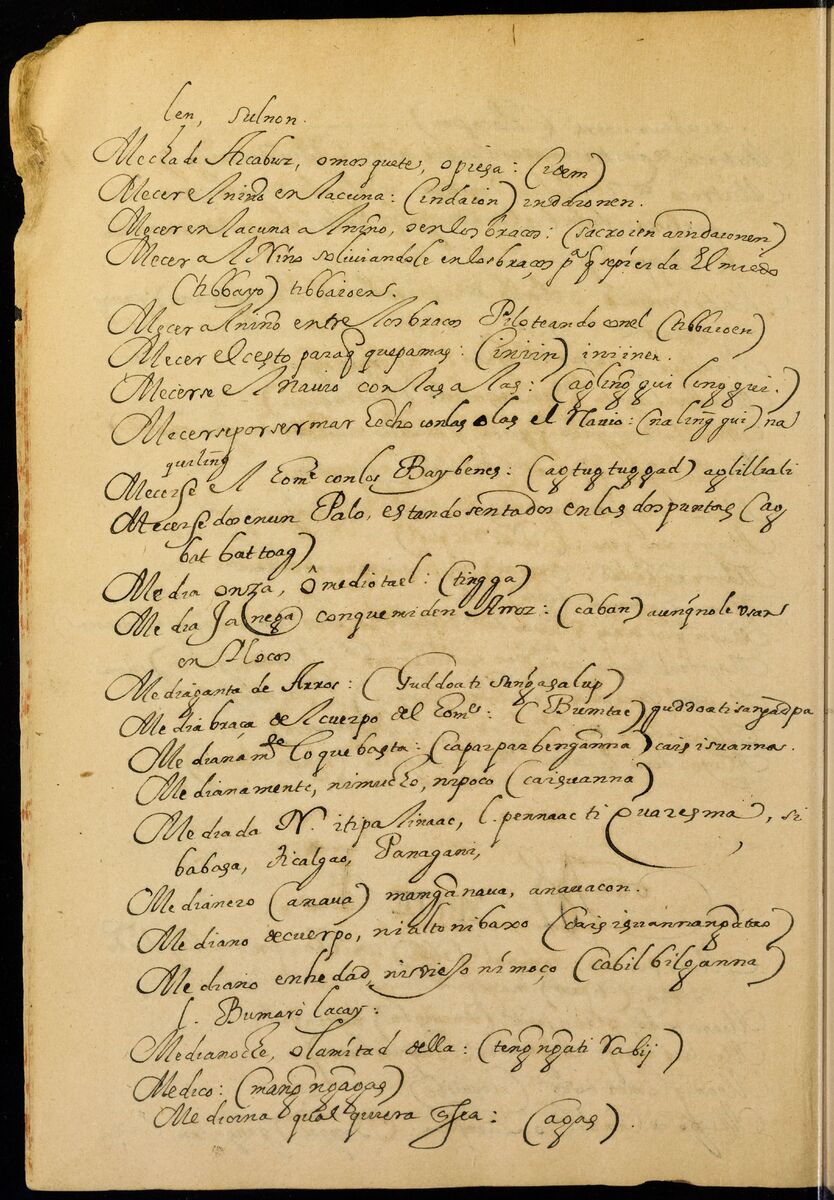 len, sulnon.
Mecha de Arcabuz, o mosquete, o piesa: (idem)
Mecer el niño en la cuna: (indaion) indaionen.
Mecer en la cuna al niño, o en los braços: (sacroien aindaionen)
Mecer al Niño soliviandole en los braços pª q̃ se pierda el miedo
(tibbayo) tibbaioens.
Mecer al niño entre los braços Piloteando con el (tibbaioen)
Mecer el cesto para q̃ quepa mas: (iniin) iniinen.
Mecerse el navio con las alas: (agling̃gui linggui.)
Mecerse por ser mar echo con las olas el Navio: (naling̃gui) na
quiling̃
Mecerse el homᵉ con los Baybenes: (agtugtuggad) aglilliati
Mecerse dos en un Palo, estando sentados en las dos puntas (ag
batbattoag)
Media onza, ô medio tael: (tingga)
Media fanega con que miden Arroz: (caban) aunq̃ no le usan
en Ilocos
Media ganta de Arros: (Guddoati sang̃asalup)
Media braça del cuerpo del homᵉ: (Bumtac) guddoati sang̃adpa
Medianamᵗᵉ lo que basta: (caparparbeng̃anna) caisisuannas.
Medianamente, ni mucho, ni poco (caisuanna)
Mediada N. itipalinaac, l. pennaac ti Quaresma, si
babasa, Aicalgao, Panagani,
Medianero (anaua) mang̃anaua, anauacon.
Mediano de cuerpo, ni alto ni baxo (caisisuannang̃atao)
Mediano en hedad, ni viejo ni moço (cabilbilg̃anna)
l. Bumaro lacay:
Medianoche, o la mitad della: (teng̃ng̃ati rabij)
Medico: (mang̃ng̃agas)
Medicina qual quiera q̃ sea: (agas).